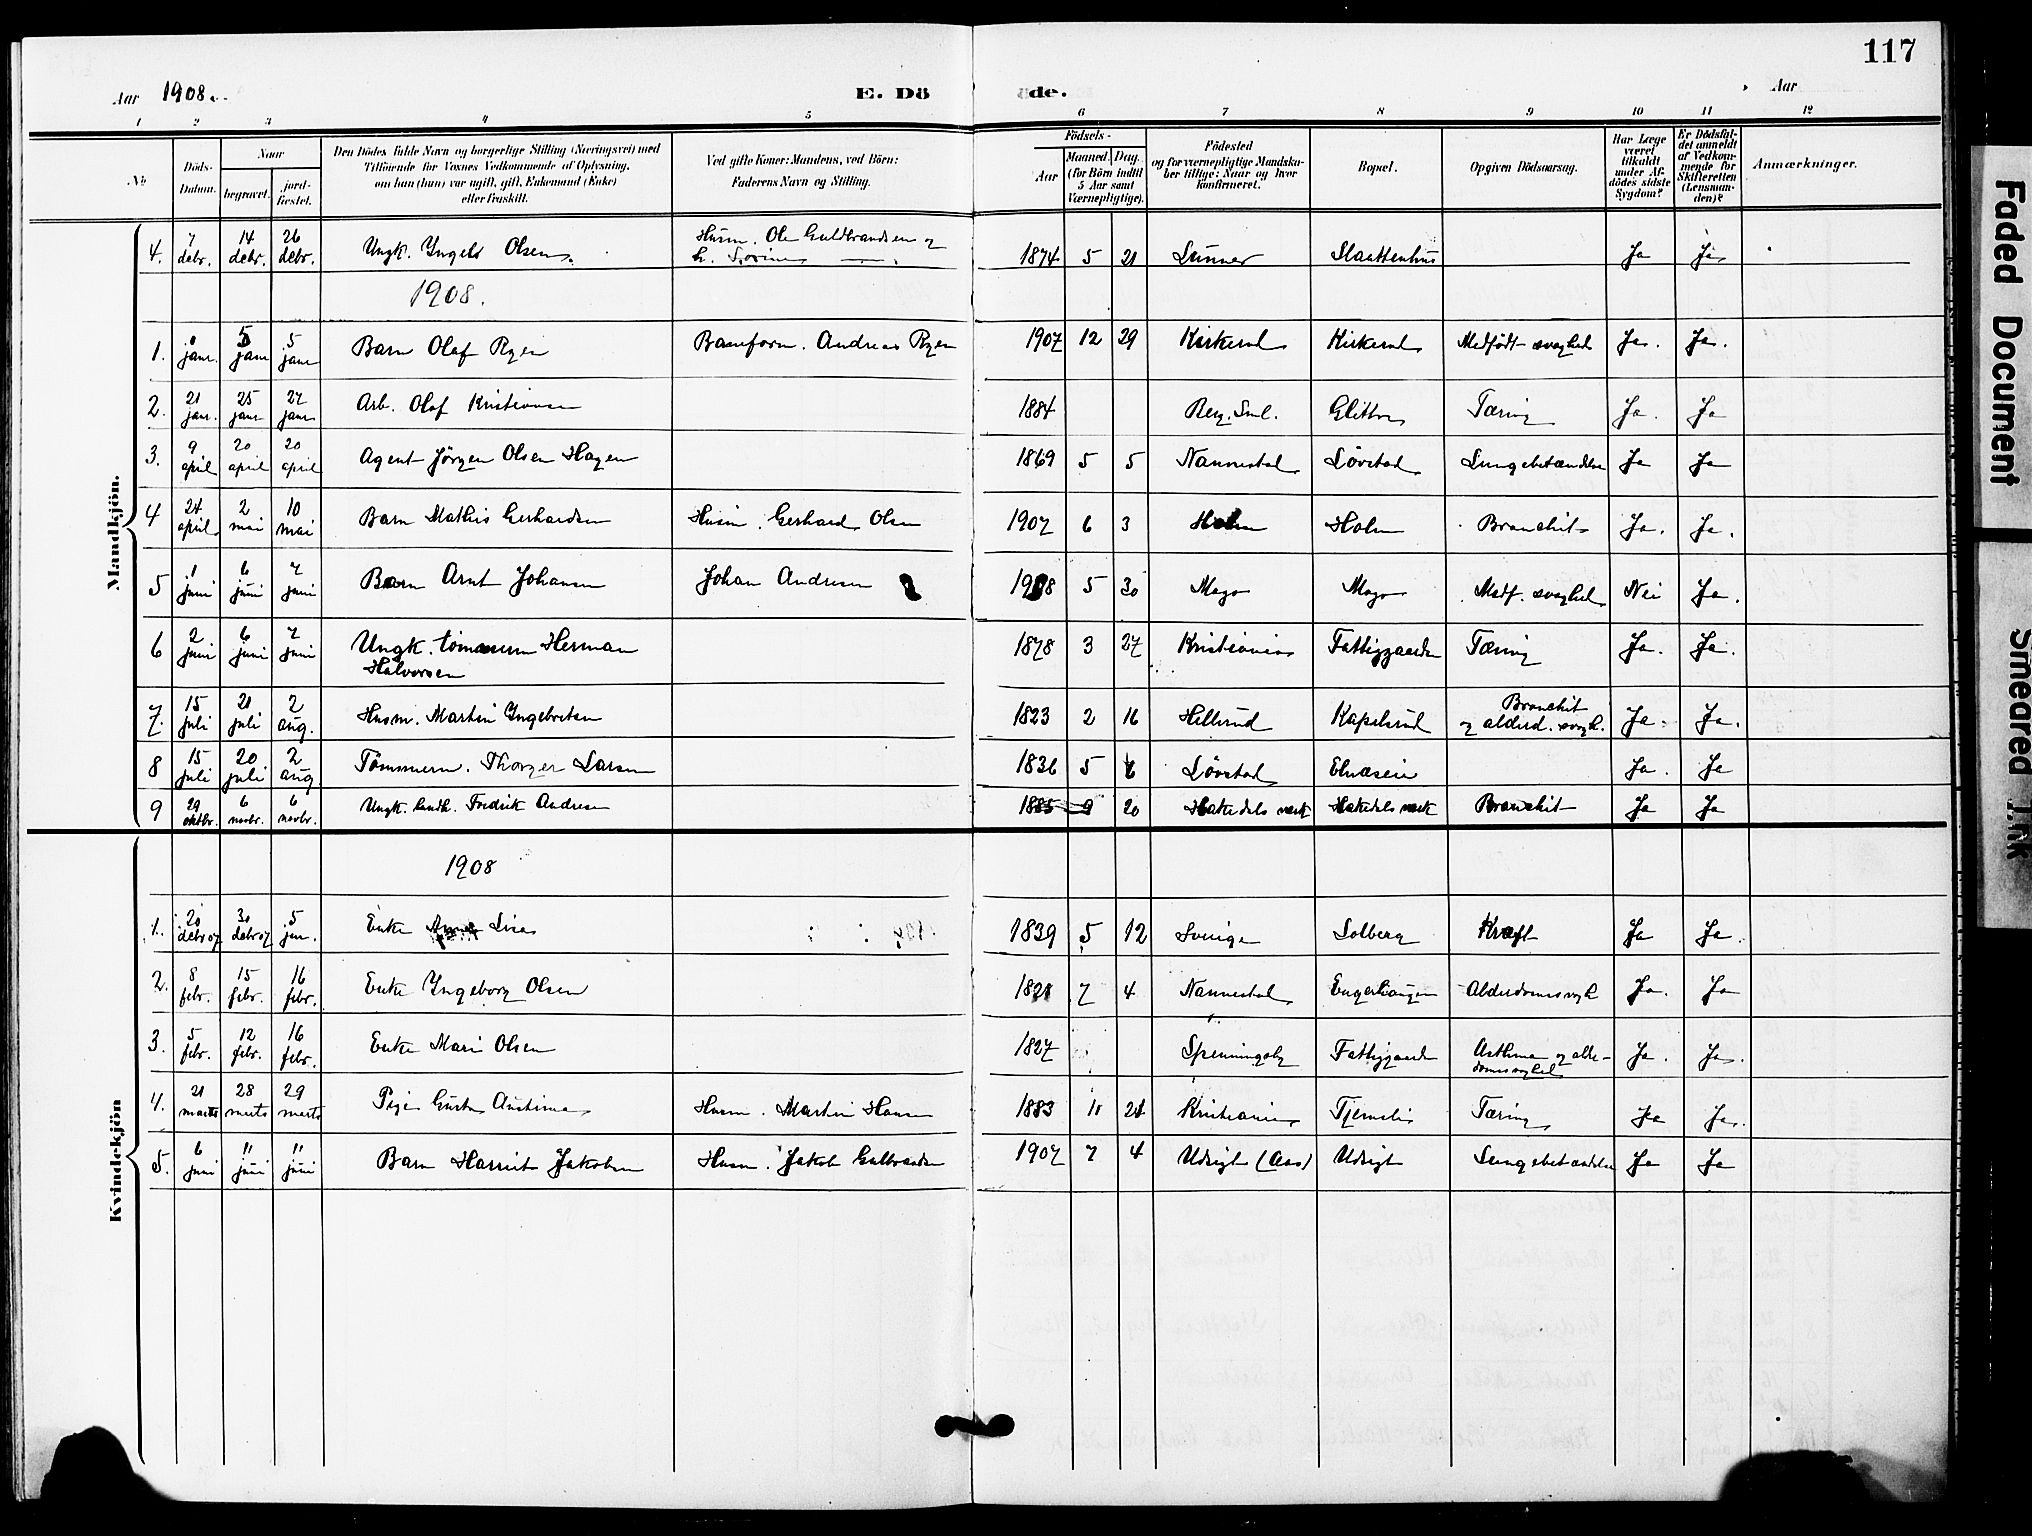 117
Aar 1908. E. Dö de. Aar
1 2 3 4 5 6 7 8 9 10 11 12
No
Döds-Datum.
Naar
begravet.
jord-fæstet.
Den Dödes fulde Navn og borgerlige Stilling (Næringsvei) med
Tilföiende for Voxnes Vedkommende af Oplysning,
om han (hun) var ugift, gift, Enkemand (Enke)
eller fraskilt.
Ved gifte Koner: Mandens, ved Börn:
Faderens Navn og Stilling.
Födsels-
Aar
Maaned. Dag.
(for Börn indtil
5 Aar samt
Værnepligtige).
Födested
og for værnepligtige Mandska-
ber tillige: Naar og hvor
konfirmeret.
Bopæl.
Opgiven Dödsaarsag.
Har Læge
været
tilkaldt
under Af-
dödes sidste
Sygdom?
Er Dödsfal-
det anmeldt
af Vedkom-
mende for
Skifteretten
(Lensman-
den)?
Anmærkninger.
Mandkjön.
4. 7 debr. 14 debr. 26 debr. Ungk. Olsen Husm. Ole Guldbrandsen og 1874 5 21 Lunner Slaattenhus Ja Ja
1908.
1. janr. 5 janr 5 janr Barn Olaf Ryen Baneform. Andreas Ryen 1907 12 29 Kirkerud Kirkerud Medfødt svaghed Ja. Ja.
2. 21 janr. 25 janr 27 janr Arb. Olaf Kristiansen 1884 Glittre Tæring Ja. Ja
3. 9 april 20 april 20 april Agent Jörgen Olsen Hagen 1869 5 5 Nannestad Løvstad Lungebetændelse Ja Ja
4 24 april 2 mai 10 mai Barn Mathis Gerhardsen Husm. Gerhard Olsen 1907 6 3 Holm Holm Bronchit Ja. Ja.
5 1 juni 6 juni 7 juni Barn Arnt Johansen Johan Andresen 1908 5 30 Mago Mago Medf. svaghed Nei Ja.
6 2 juni 6 juni 7 juni Ungk. tømmerm Herman
Halvorsen 1878 3 27 Kristiania Fattiggaarden Tæring Ja. Ja.
7. 15 juli 21 juli 2 aug. Husm. Martin Ingebretsen 1823 2 16 Hellerud Kapelsrud Bronchit
og alderd. svagh. Ja. Ja.
8 15 juli 20 juli 2 aug Tømmerm. Thorger Larsen 1836 5 6 Løvstad Elnæseie Ja. Ja
9 29 oktbr. 6 novbr. 6 novbr. Ungk. landh. Fredrik Andresen 1885 9 20 Hakedals verk Hakedals verk Bronchit Ja Ja
Kvindekjön
1908
1. 20 debr 07 30 debr 07 5 jan. Enke Anna Lisa 1839 5 12 Sverige Solberg Kræft Ja Ja.
2. 8 febr. 15 febr. 16 febr. Enke Ingeborg Olsen 7 4 Nannestad Engerhaugen Alderdomssvagh Ja. Ja
3. 5 febr. 12 febr. 16 febr. Enke Mari Olsen 1827 Spenningsby Fattiggaard Asthma og alder-
domssvaghed Ja. Ja.
4. 21 marts 28 marts 29 marts Pige Gusta Husm. Martin Hansen 1883 11 24 Kristiania Tjernsli Tæring Ja Ja.
5. 6 juni 11 juni 11 juni Barn Harriet Jakobsen Husm. Jakob Gulbrandsen 1907 7 4 Udsigt (Aas) Udsigt Lungebetændelse Ja Ja
Faded Document
Smeared Ink